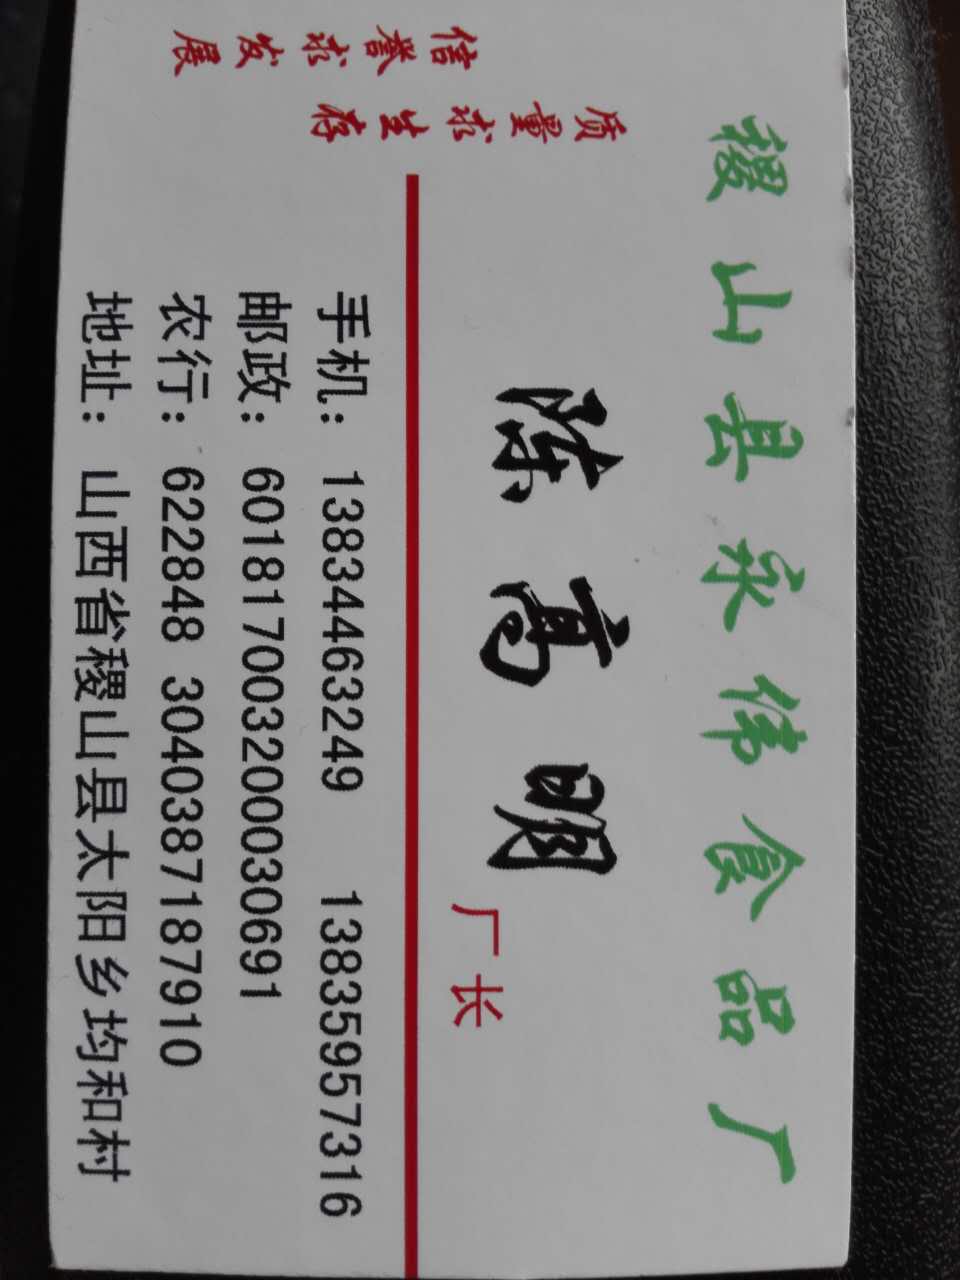 稷山县永伟食品厂
质量求生存
信誉求发展
陈高明
厂长
手机：13834463249 13835957316
邮政：601817003200030691
农行：622848 3040387187910
地址：山西省稷山县太阳乡均和村